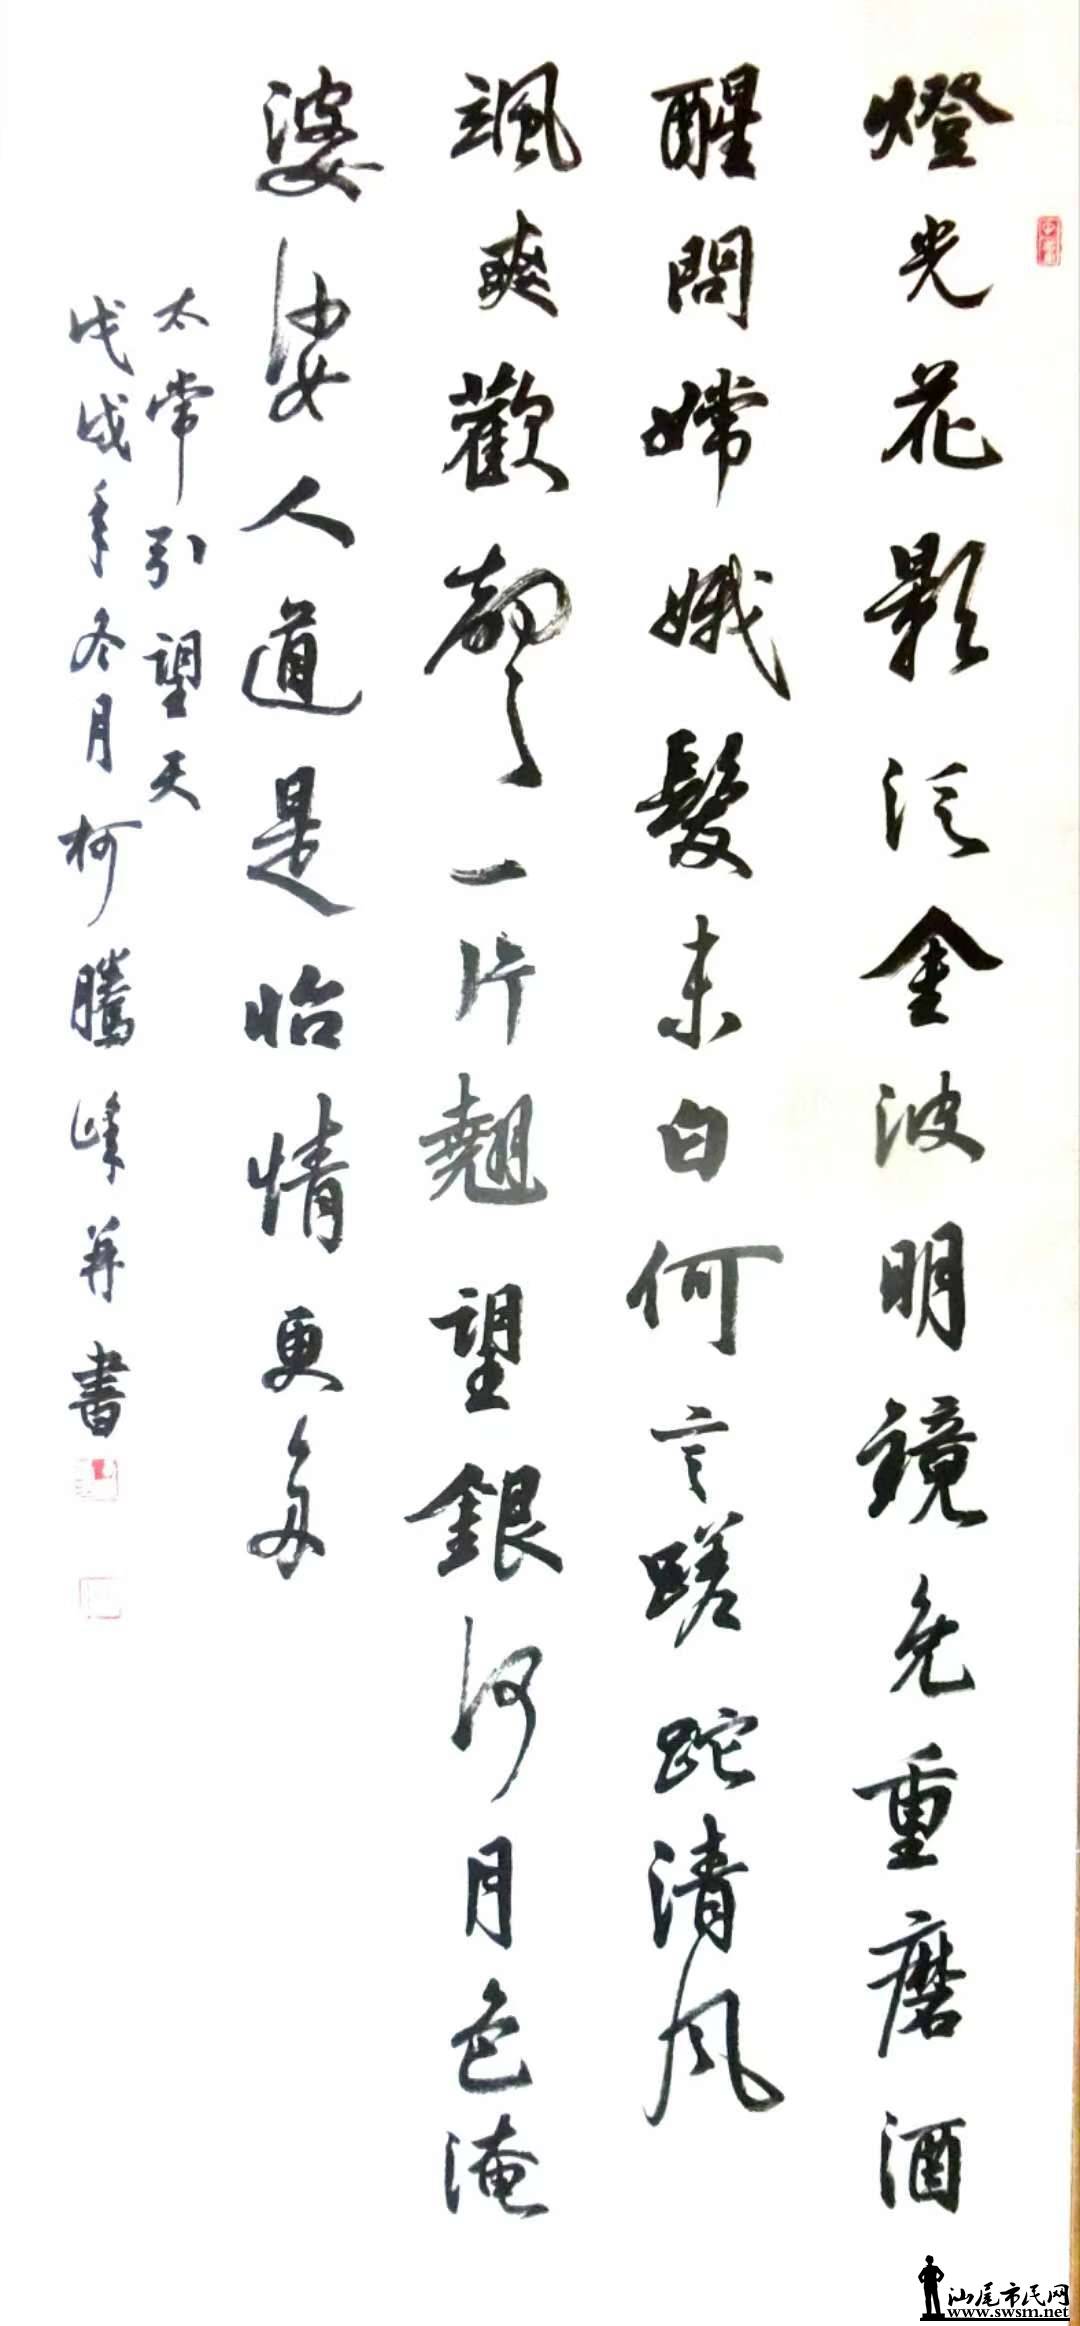 燈光花影泛金波明鏡免重磨酒
醒問嫦娥髮未白何言蹉跎清風
颯爽歡聲一片翹望銀河月色淹
婆娑人道是怡情更多
太常引望天
戊戌年冬月柯騰峰并書
汕尾市民网
www.swsm.net